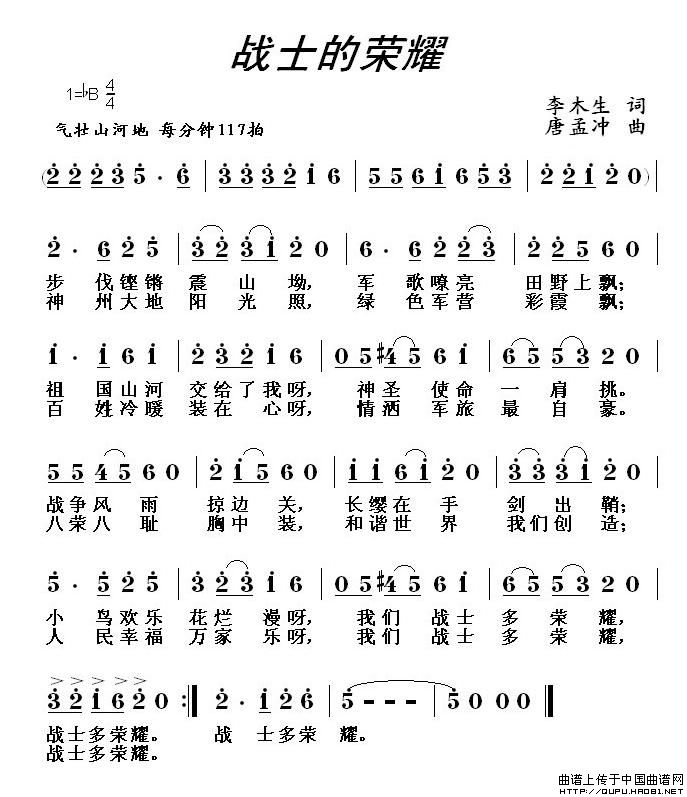 战士的荣耀
1=♭B 4/4
李木生 词
气壮山河地 每分钟117拍
唐孟冲 曲
(2̇ 2̇ 2̇ 3̇ 5̇ · 6̇ | 3̇ 3̇ 3̇ 2̇ 1̇ 6 | 5 5 6 1̇ 6 5̇ 3̇ | 2̇ 2̇ 1̇ 2̇ 0) |
2̇ · 6 2̇ 5̇ | 3̇ 2̇ 3̇ 1̇ 2̇ 0 | 6 · 6̇ 2̇ 2̇ 3̇ | 2̇ 2̇ 5̇ 6 0 |
步 伐铿锵 震 山 坳, 军 歌嘹亮 田野上飘;
神 州大地 阳 光 照, 绿 色军营 彩霞 飘;
1̇ · 1̇ 6 1̇ | 2̇ 3̇ 2̇ 1̇ 6 | 0 5 #4 5 6 1̇ | 6 5 5 3̇ 2̇ 0 |
祖 国山河 交给了我呀, 神圣 使命 一 肩 挑。
百 姓冷暖 装在 心呀, 情洒 军旅 最 自 豪。
5 5 4 5 6 0 | 2̇ 1̇ 5 6 0 | 1̇ 1̇ 6 1̇ 2̇ 0 | 3̇ 3̇ 3̇ 1̇ 2̇ 0 |
战争风 雨 掠边 关, 长缨在 手 剑 出 鞘;
八荣八 耻 胸中 装, 和谐世 界 我们创 造;
5̇ · 5̇ 2̇ 5̇ | 3̇ 2̇ 3̇ 1̇ 6 | 0 5 #4 5 6 1̇ | 6 5 5 3̇ 2̇ 0 |
小 鸟欢乐 花烂 漫呀, 我们 战士 多 荣 耀,
人 民幸福 万家 乐呀, 我们 战士 多 荣 耀,
> > > > >
3̇ 2̇ 1̇ 6 2̇ 0 :‖ 2̇ · 1̇ 2̇ 6̇ | 5 — — — | 5 0 0 0 ‖
战士多荣耀。 战 士多荣 耀。
战士多荣耀。
曲谱上传于中国曲谱网
HTTP://QUPU.HAO81.NET